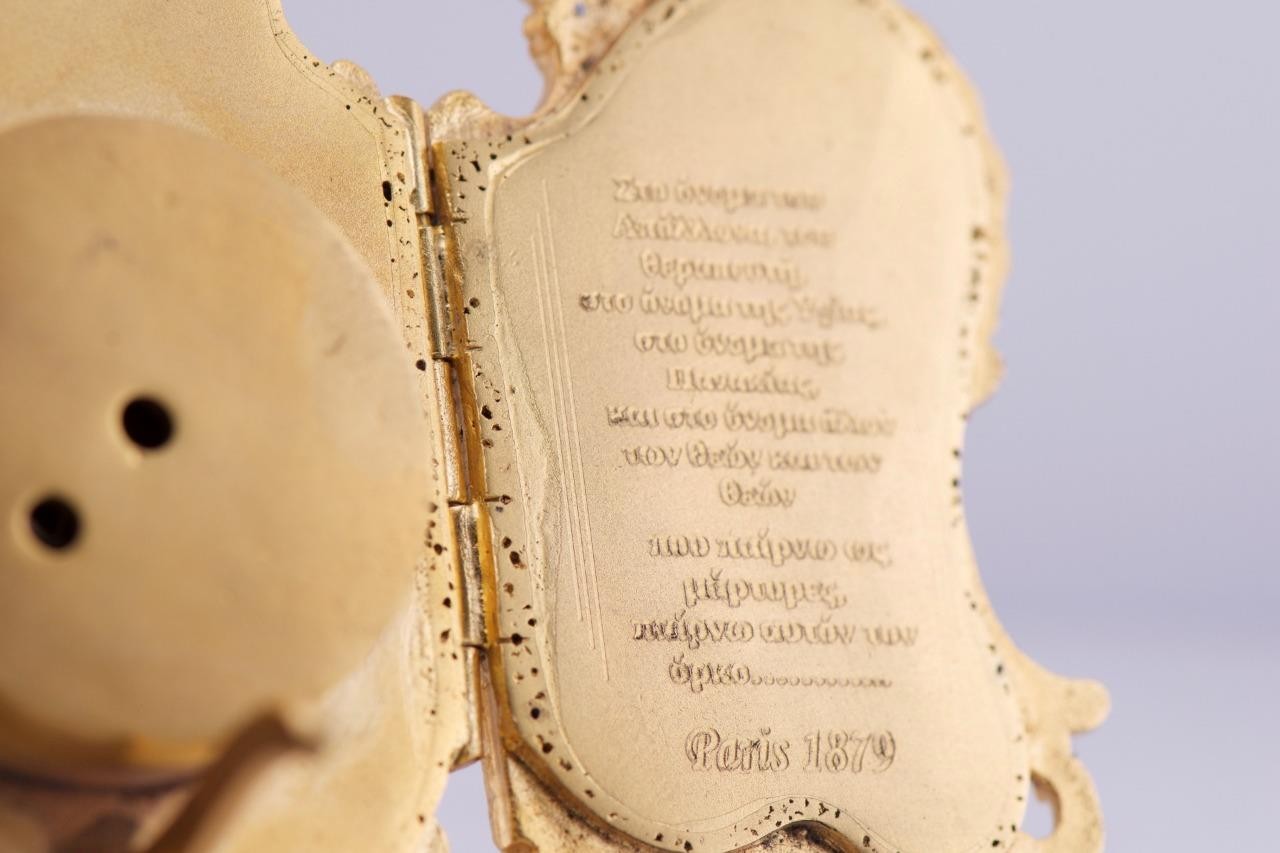 Στο όνομα του
Απόλλωνα, του
θεραπευτή,
στο όνομα της Υγείας,
στο όνομα της
Πανακείας,
και στο όνομα όλων
των θεών και των
θεών
που παίρνω ως
μάρτυρες,
παίρνω αυτόν τον
όρκο..............
Paris 1879